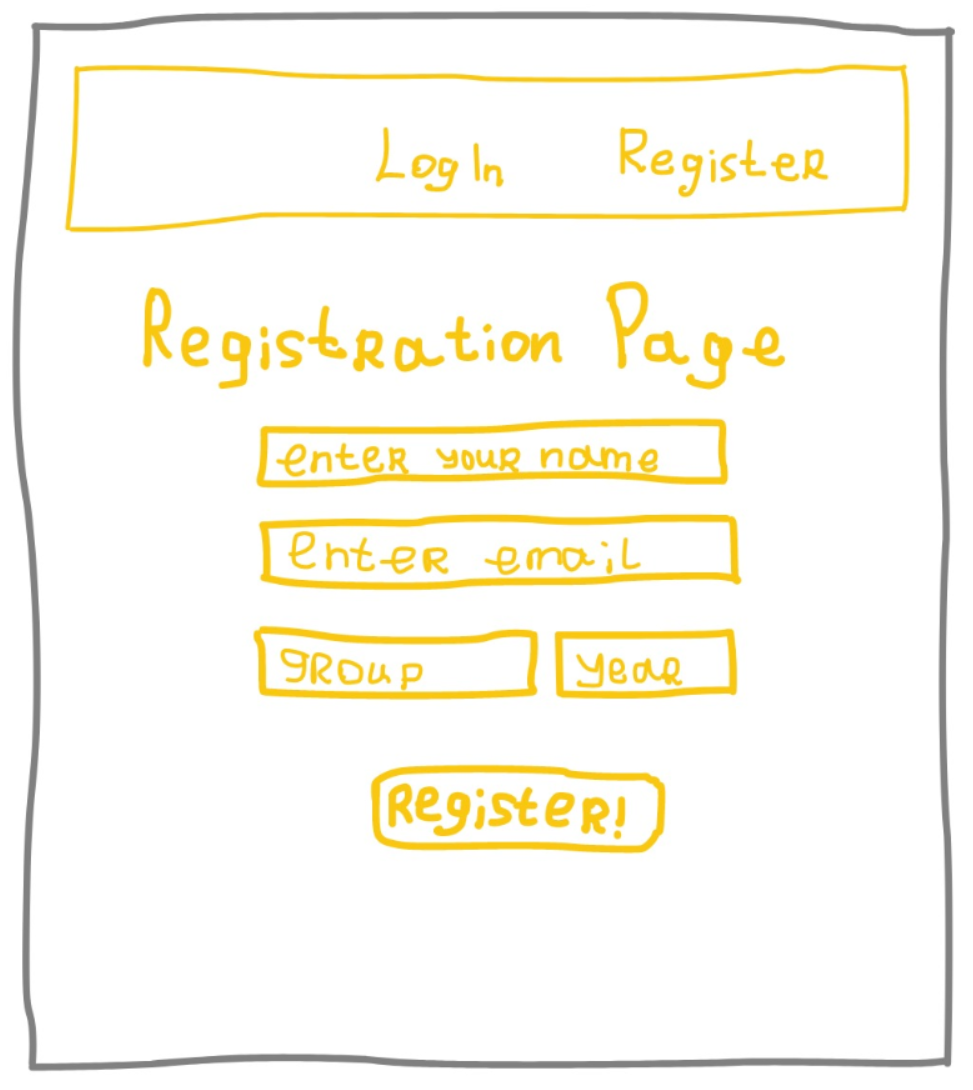 Log In Register
Registration Page
enter your name
enter email
group year
Register!